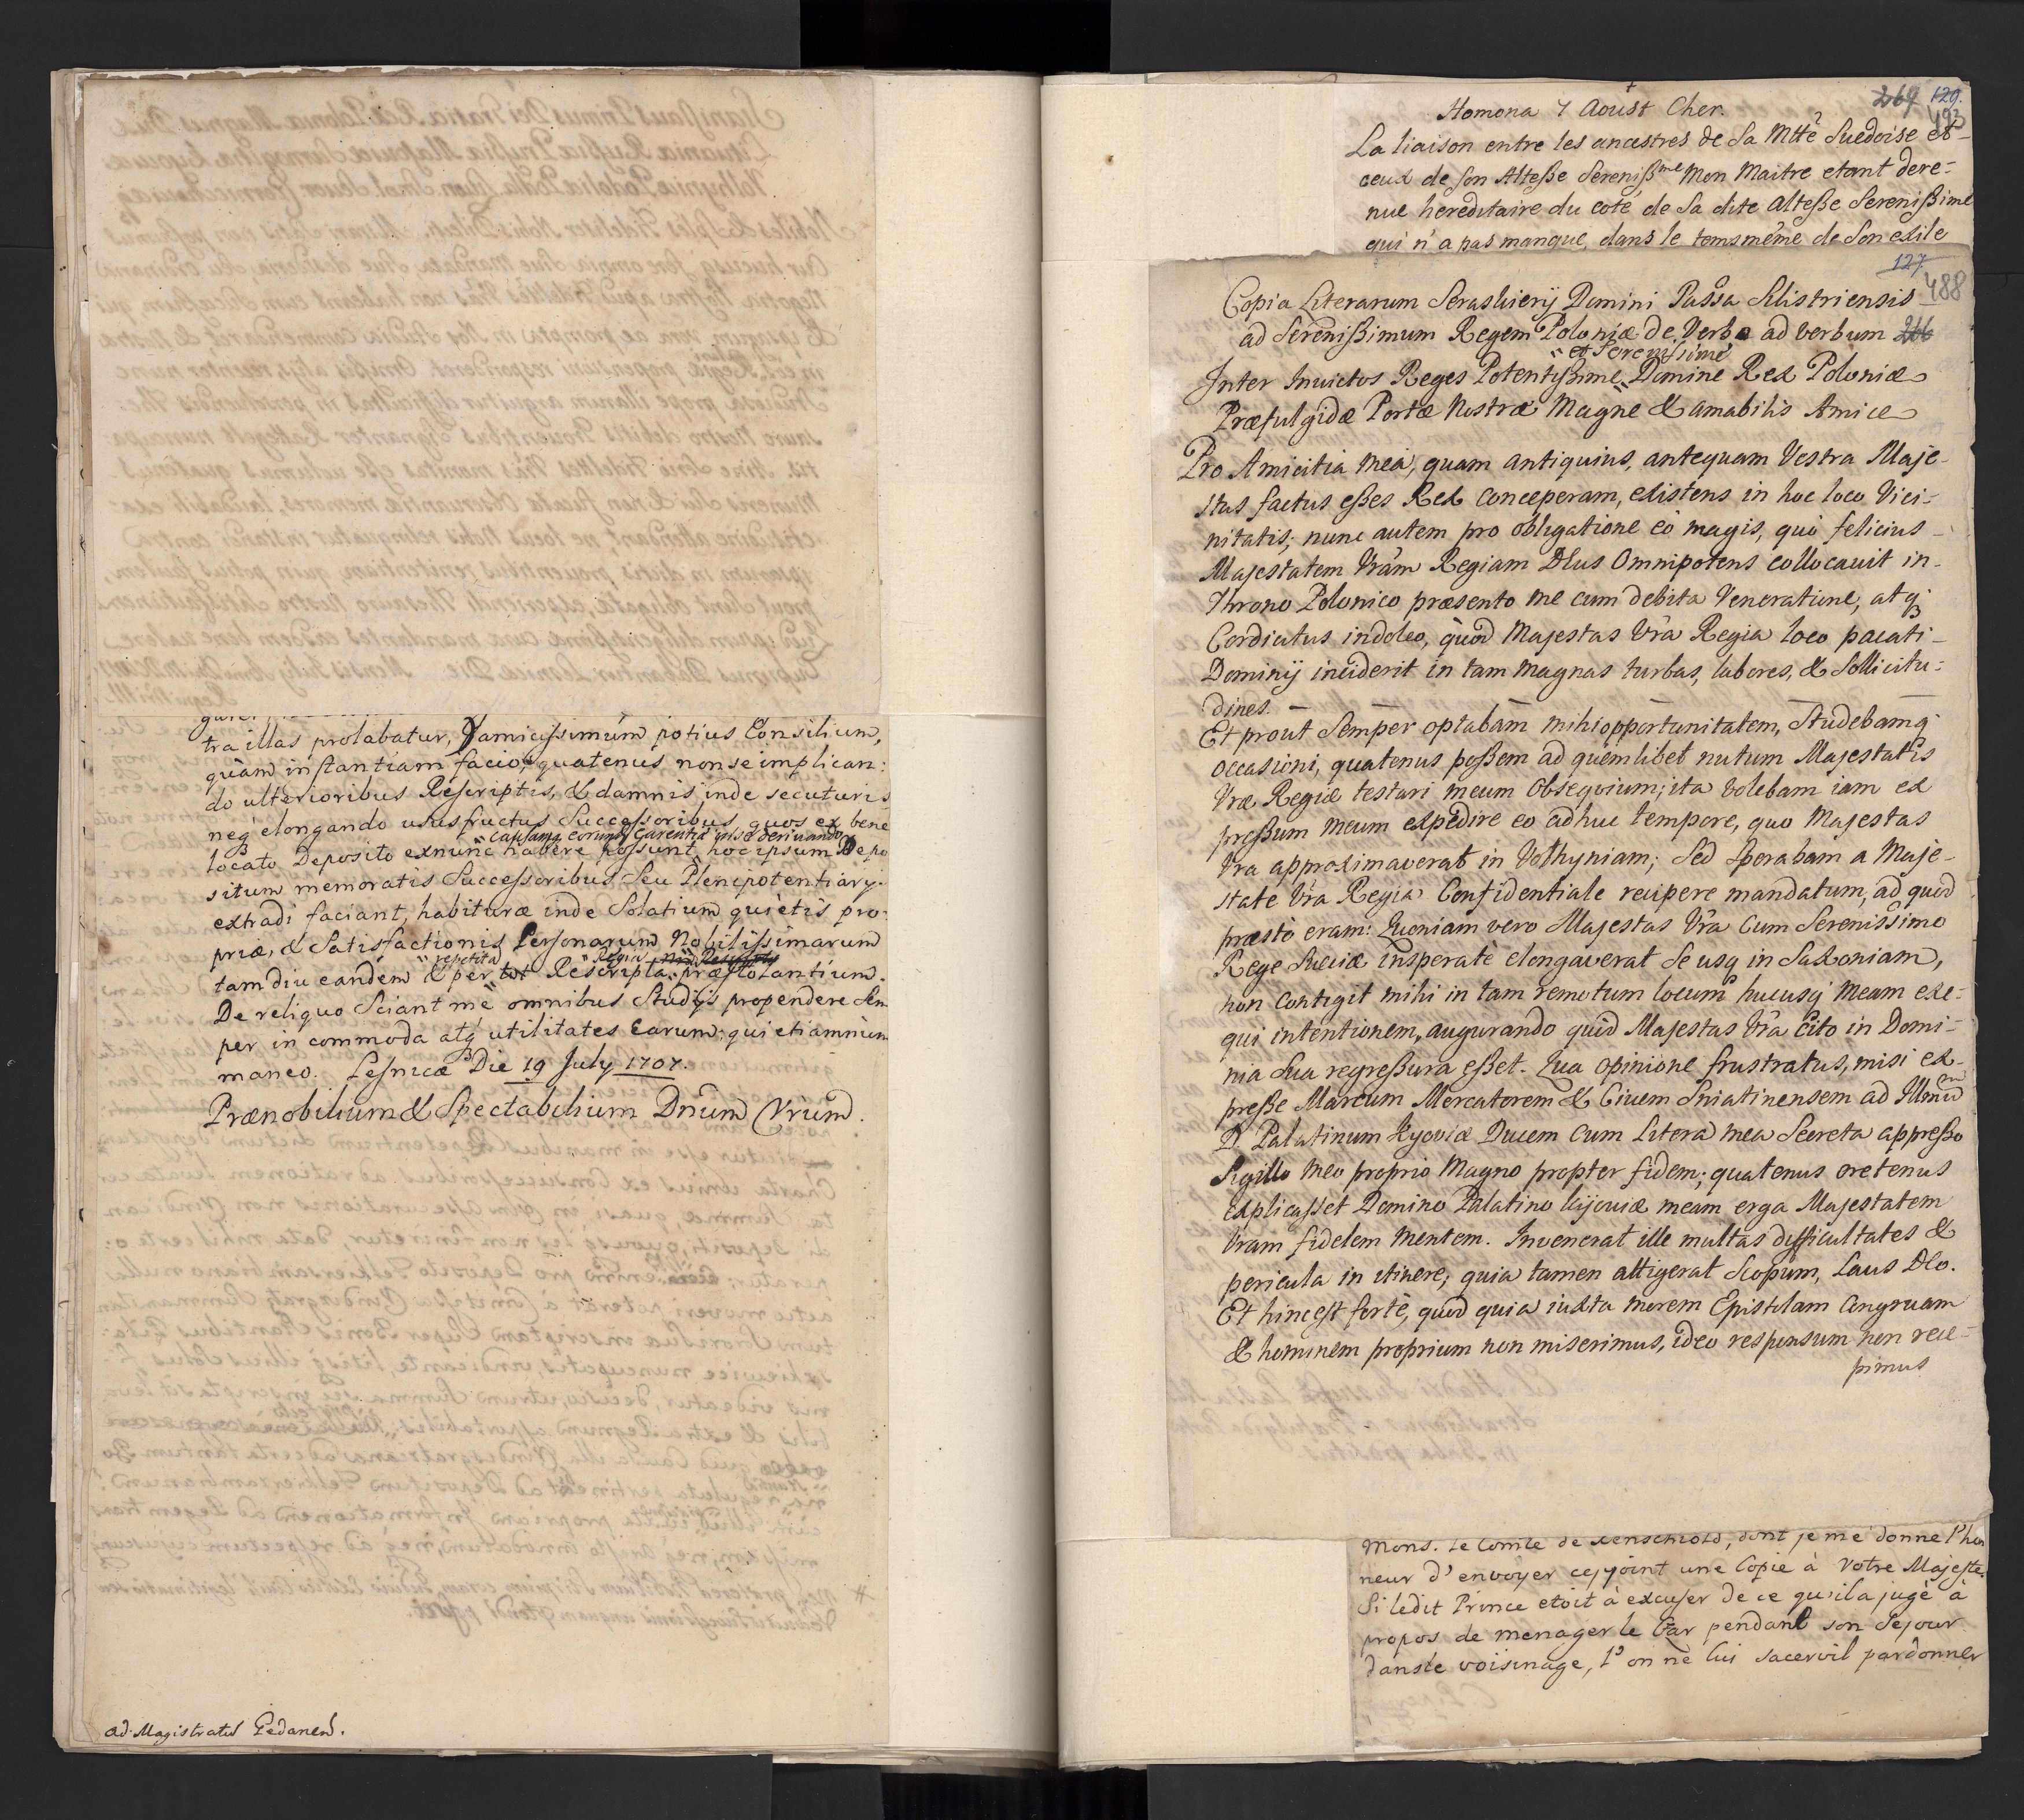 tra illas prolabatur, amicissimum potius Consilium,
quàm instantiam facio, quatenus non se implican:
do ulterioribus Rescriptis, & damnis inde secuturis
neq elongando ususfructus Successoribus quos ex bene
causamq eorum carentia
locato Deposito exnunc habere possunt, hoc ipsum Depo
situm memoratis Successoribus seu Plenipotentiary
extradi faciant, habituræ inde Solatium quietis pro:
priæ, & Satisfactionis Personarum Nobilissimarum
repetita Regia
tam diu eandem & per tot Rescripta præstolantium.
De reliquo Sciant me omnibus Studijs propendere Sem
per in commoda atq utilitates Earum; qui etiamnum
maneo. Lesnicæ Die 19 July 1707.
Prænobilium & Spectabilium Dnūm Vrūm.
ad Magistratū Gedanen̄.
269 129.
493
Homona 7 Aoust Cher.
La liaison entre les ancestres de Sa Mtté Suedoise et
ceux de son Altesse Sereniss^me Mon Maitre etant deve=
nue hereditaire du coté de Sa dite Altesse Serenissime
qui n'a pas manque, dans le temsméme de Son exile
127.
488
Copia Literarum Seraskierij Domini Passa Silistriensis
ad Serenissimum Regem Poloniæ de Verbo ad verbum 266
et Serenissime
Inter Invictos Reges Potentissime Domine Rex Poloniæ
Præfulgidæ Portæ Nostræ Magne & amabilis Amice
Pro Amicitia mea, quam antiquius, antequam Vestra Maje-
stas factus esses Rex conceperam, existens in hoc loco Vici=
nitatis; nunc autem pro obligatione eò magis, quò felicius
Majestatem Vrām Regiam DEus Omnipotens collocavit in
Throno Polonico præsento me cum debita Veneratione, atq
Cordicitus indoleo, quod Majestas Vrā Regia loco pacati
Dominij inciderit in tam magnas turbas, labores, & Sollicitu=
dines.
Et prout Semper optabam mihi opportunitatem, Studebamq
occasioni, quatenus possem ad quemlibet nutum Majestatis
Vræ Regiæ testari meum Obsequium; ita volebam iam ex
pressum meum expedire eo adhuc tempore, quo Majestas
Vra approximaverat in Volhyniam; Sed Sperabam a Maje-
state Vrā Regia Confidentiale recipere mandatum, ad quod
præstò eram: Quoniam vero Majestas Vrā Cum Serenissimo
Rege Sueciæ insperatè elongaverat Se usq in Saxoniam,
non contigit mihi in tam remotum locum hucusq meam exe=
qui intentionem, augurando quid Majestas Vrā Cito in Domi=
nia Sua regressura esset. Qua opinione frustratus, misi ex-
presse Marcum Mercatorem & Civem Sniatinensem ad Illmū
D. Palatinum Kyoviæ Ducem cum Litera mea Secreta appresso
Sigillo meo proprio Magno propter fidem; quatenus oretenus
explicasset Domino Palatino Kijoviæ meam erga Majestatem
Vram fidelem Mentem. Invenerat ille multas difficultates &
pericula in itinere, quia tamen attigerat Scopum, Laus DEo.
Et hinc est fortè, quod quia iuxta morem Epistolam Congruam
& hominem proprium non miserimus, ideo responsum non rece=
pimus
Mons. le Comte de , dont je me donne l'hon
neur d'envoyer cejoint une Copie à Votre Majeste.
Si ledit Prince etoit à excuser de ce qu'il a jugè à
propos de menager le Czar pendant son Sejour
dans le voisinage, l'on ne lui pardonner